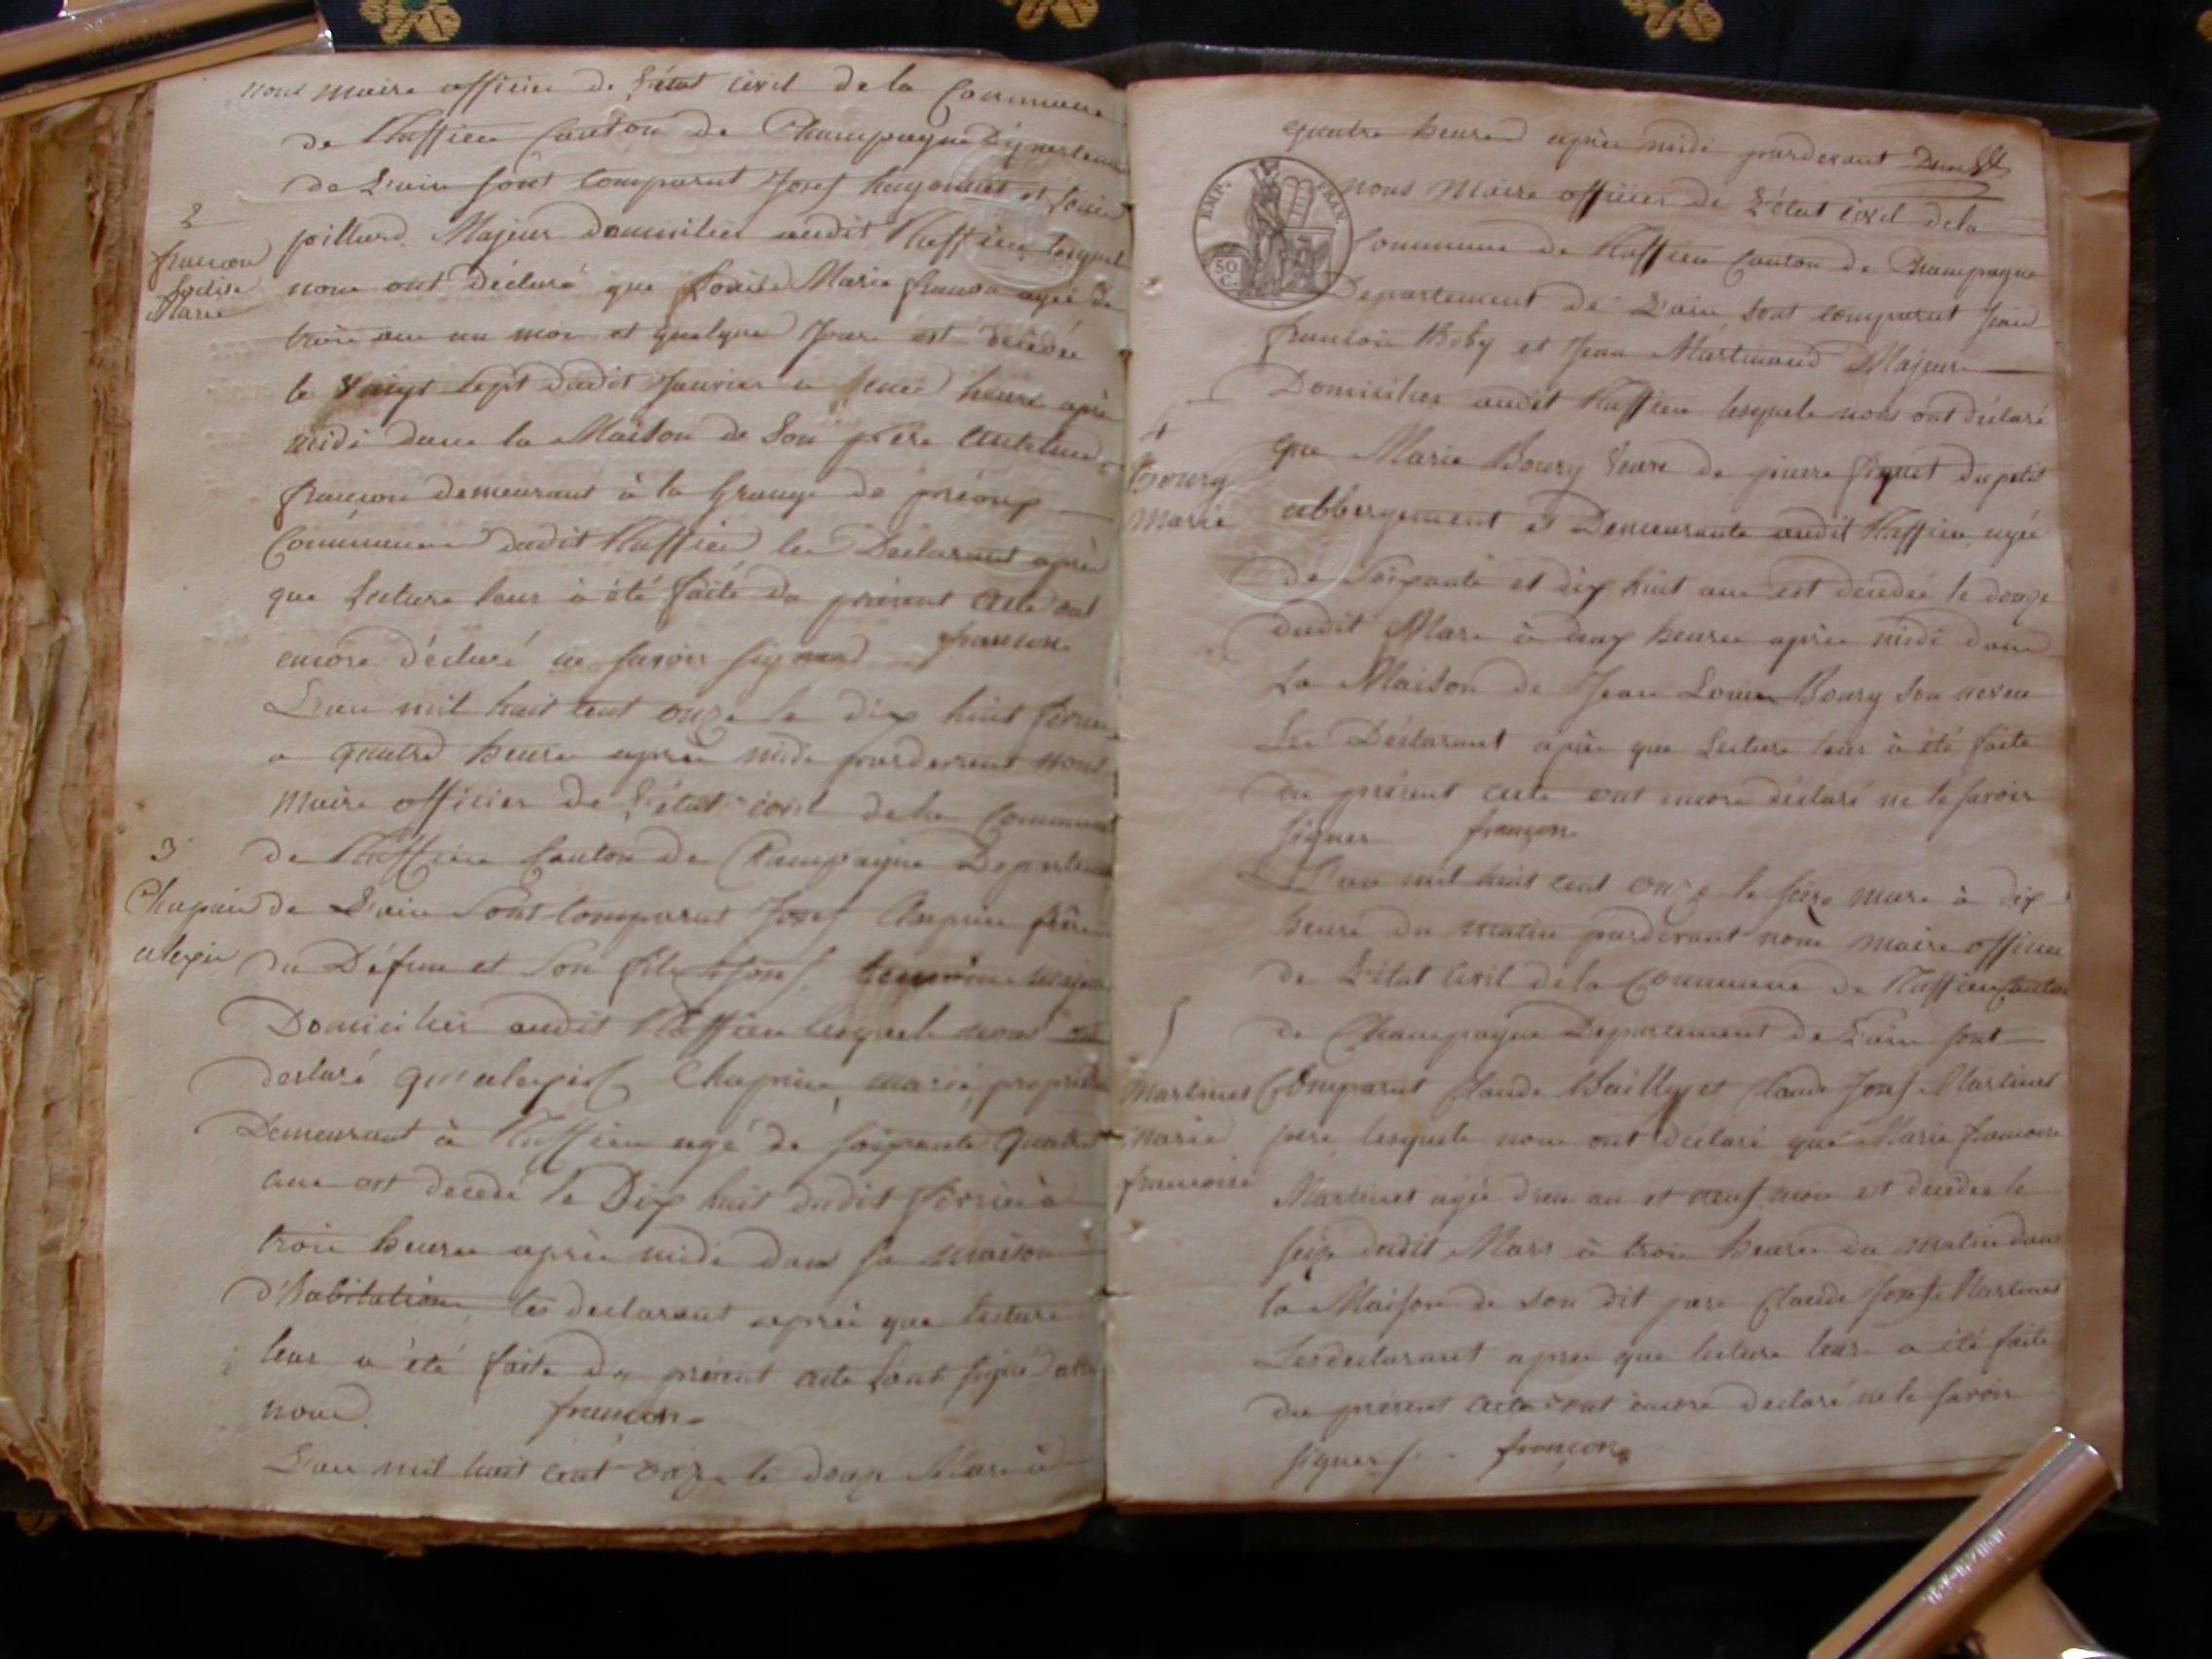 nous maire officier de L'état civil de la Commune
de Ruffieu Canton de Champagne Département
de L'ain sont comparut Josef hugonnet et Louis
2
françon
Louise
Marie
pillard Majeur domiciliés audit Ruffieu lesquels
nous ont déclaré que Louise Marie françon agée de
trois ans un mois et quelque Jours est décédée
le vingt sept dudit Janvier a heure après
midi dans la Maison de Son père Anthelme
françon demeurant à la Grange de
Commune dudit Ruffieu les Déclarant après
que Lecture leur à été faite du présent acte ont
encore déclaré ne savoir signer françon
L'an mil huit cent onze le dix huit février
a quatre heure après midi pardevant nous
maire officier de L'état civil de la Commune
3
Chapuis
alexis
de Ruffieu Canton de Champagne Departement
de L'ain Sont comparut Josef Chapuis frère
du Défun et Son fils Josef majeur
Domiciliés audit Ruffieu lesquels nous ont
declaré qu'alexis Chapuis, marié, propriétaire
Demeurant à Ruffieu agé de soixante quatre
ans est decedé le Dix huit dudit février à
trois heures après midi dans sa maison
d'habitation, les declarant après que lecture
leur a été faite du présent acte Sont signé avec
nous. françon
L'an mil huit cent onze le douze Mars à
quatre heures après midi pardevant
EMP. FRAN.
50 C.
nous Maire officier de L'état civil de la
Commune de Ruffieu Canton de Champagne
Departement de L'ain sont comparut Jean
françois Boby et Jean Martinand Majeurs
Domiciliés audit Ruffieu lesquels nous ont déclaré
4
Boury
Marie
que Marie Boury Veuve de pierre figuet du petit
abbergement et Demeurante audit Ruffieu agée
de Soixante et dix huit ans est decedée le douze
dudit Mars à deux heures après midi dans
La Maison de Jean Louis Boury Son neveu
Les Déclarant après que Lecture leur à été faite
du présent acte ont encore déclaré ne le savoir
signer françon
L'an mil huit cent onze le seize mars à dix
heure du matin pardevant nous maire officier
de L'état civil de la Commune de Ruffieu Canton
de Champagne Departement de L'ain sont
5
Martinet
marie
francoise
Comparut Claude Bailly et Claude Josef Martinet
père lesquels nous ont déclaré que Marie francoise
Martinet agée d'un an et neuf mois et decedée le
seize dudit Mars à trois heures du matin dans
la Maison de son dit père Claude Josef Martinet
Les declarant après que lecture leur a été faite
du présent acte ont encore declaré ne le savoir
signer françon